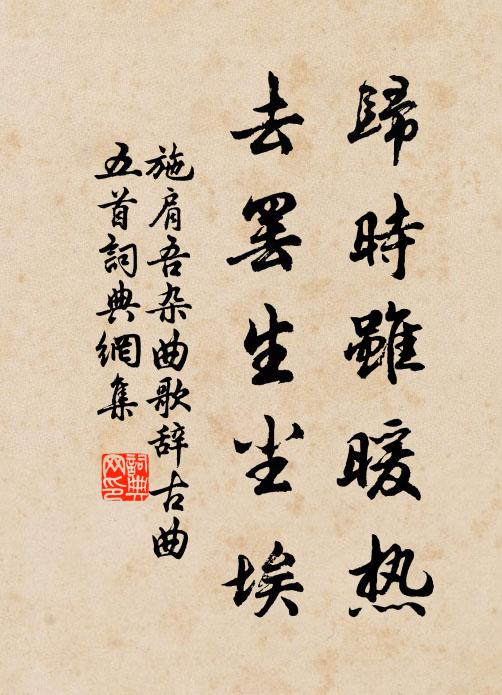 歸時雖暖热
去罢生尘埃
施肩吾杂曲歌辞古曲
五首詞典網集
詞典
网印